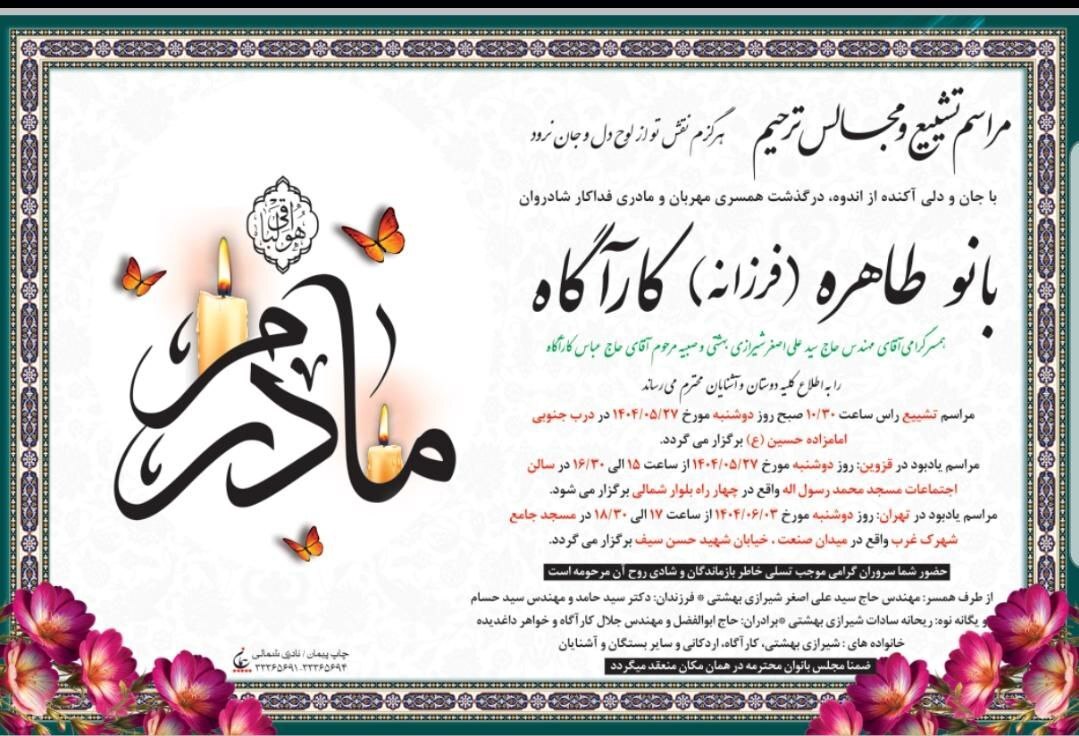 مراسم تشییع و مجالس ترحیم
هرگزم نقش تو از لوح دل و جان نرود
با جان و دلی آکنده از اندوه، درگذشت همسری مهربان و مادری فداکار شادروان
بانو طاهره (فرزانه) کارآگاه
همسر گرامی آقای مهندس حاج سید علی اصغر شیرازی بهشتی و صبیه مرحوم آقای حاج عباس کارآگاه
را به اطلاع کلیه دوستان و آشنایان محترم می رساند
مراسم تشییع راس ساعت ۱۰/۳۰ صبح روز دوشنبه مورخ ۱۴۰۴/۰۵/۲۷ در درب جنوبی
امامزاده حسین (ع) برگزار می گردد.
مراسم یادبود در قزوین: روز دوشنبه مورخ ۱۴۰۴/۰۵/۲۷ از ساعت ۱۵ الی ۱۶/۳۰ در سالن
اجتماعات مسجد محمد رسول اله واقع در چهار راه بلوار شمالی برگزار می شود.
مراسم یادبود در تهران: روز دوشنبه مورخ ۱۴۰۴/۰۶/۰۳ از ساعت ۱۷ الی ۱۸/۳۰ در مسجد جامع
شهرک غرب واقع در میدان صنعت ، خیابان شهید حسن سیف برگزار می گردد.
حضور شما سروران گرامی موجب تسلی خاطر بازماندگان و شادی روح آن مرحومه است
از طرف همسر: مهندس حاج سید علی اصغر شیرازی بهشتی * فرزندان: دکتر سید حامد و مهندس سید حسام
و یگانه نوه: ریحانه سادات شیرازی بهشتی *برادران: حاج ابوالفضل و مهندس جلال کارآگاه و خواهر داغدیده
خانواده های : شیرازی بهشتی، کارآگاه، اردکانی و سایر بستگان و آشنایان
ضمنا مجلس بانوان محترمه در همان مکان منعقد میگردد
هوالباقی
مادرم
چاپ پیمان / نادری شمالی
۳۳۳۶۵۶۹۱-۳۳۳۶۵۶۹۴